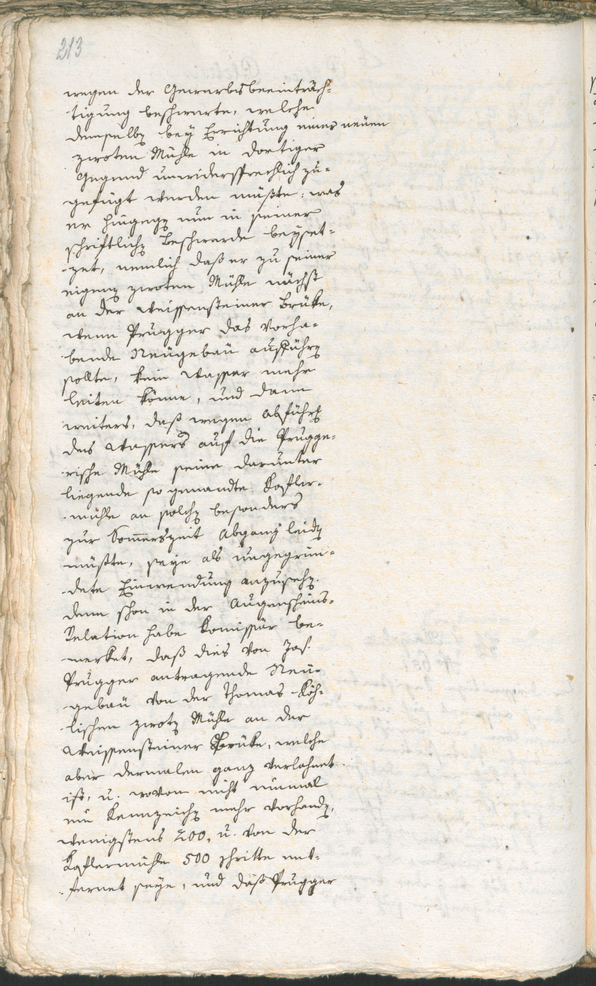 213
wegen der Gewerbsbeeinträch-
tigung beschwerte, welche
demselb bey Errichtung eines neuen
zwoten Mühle in dortiger
Gegend unwidersprechlich zu-
gefügt werden müßte; was
er hingegen nun in seiner
schriftlich Beschwerde beyset-
zet, nemlich daß er zu seiner
eigenen zwoten Mühle nächst
an der Weissensteiner Brüke,
wenn Prugger das vorha-
bende Neugebäu ausführen
sollte, kein Wasser mehr
leiten könne, und dann
weiters, daß wegen Abführ
des Wassers auf die Prugge-
rische Mühle seine darunter
liegende so genandte Kofler-
mühle an solchen besonders
zur Sommerszeit Abgang leiden
müßte, seye als ungegrün-
dete Einwendung anzusehen.
denn schon in der Augenscheins-
Relation habe Komissär be-
merket, daß dies von Jos.
Prugger antragende Neu-
gebäu von der Thomas Köh-
lischen zwoten Mühle an der
Weissensteiner Brüke, welche
aber dermalen ganz verlahnet
ist, u. wovon nicht einmal
ein Kennzeichen mehr vorhanden,
wenigstens 200, u. von der
Koflermühle 500 schritte ent-
fernet seye, und daß Prugger